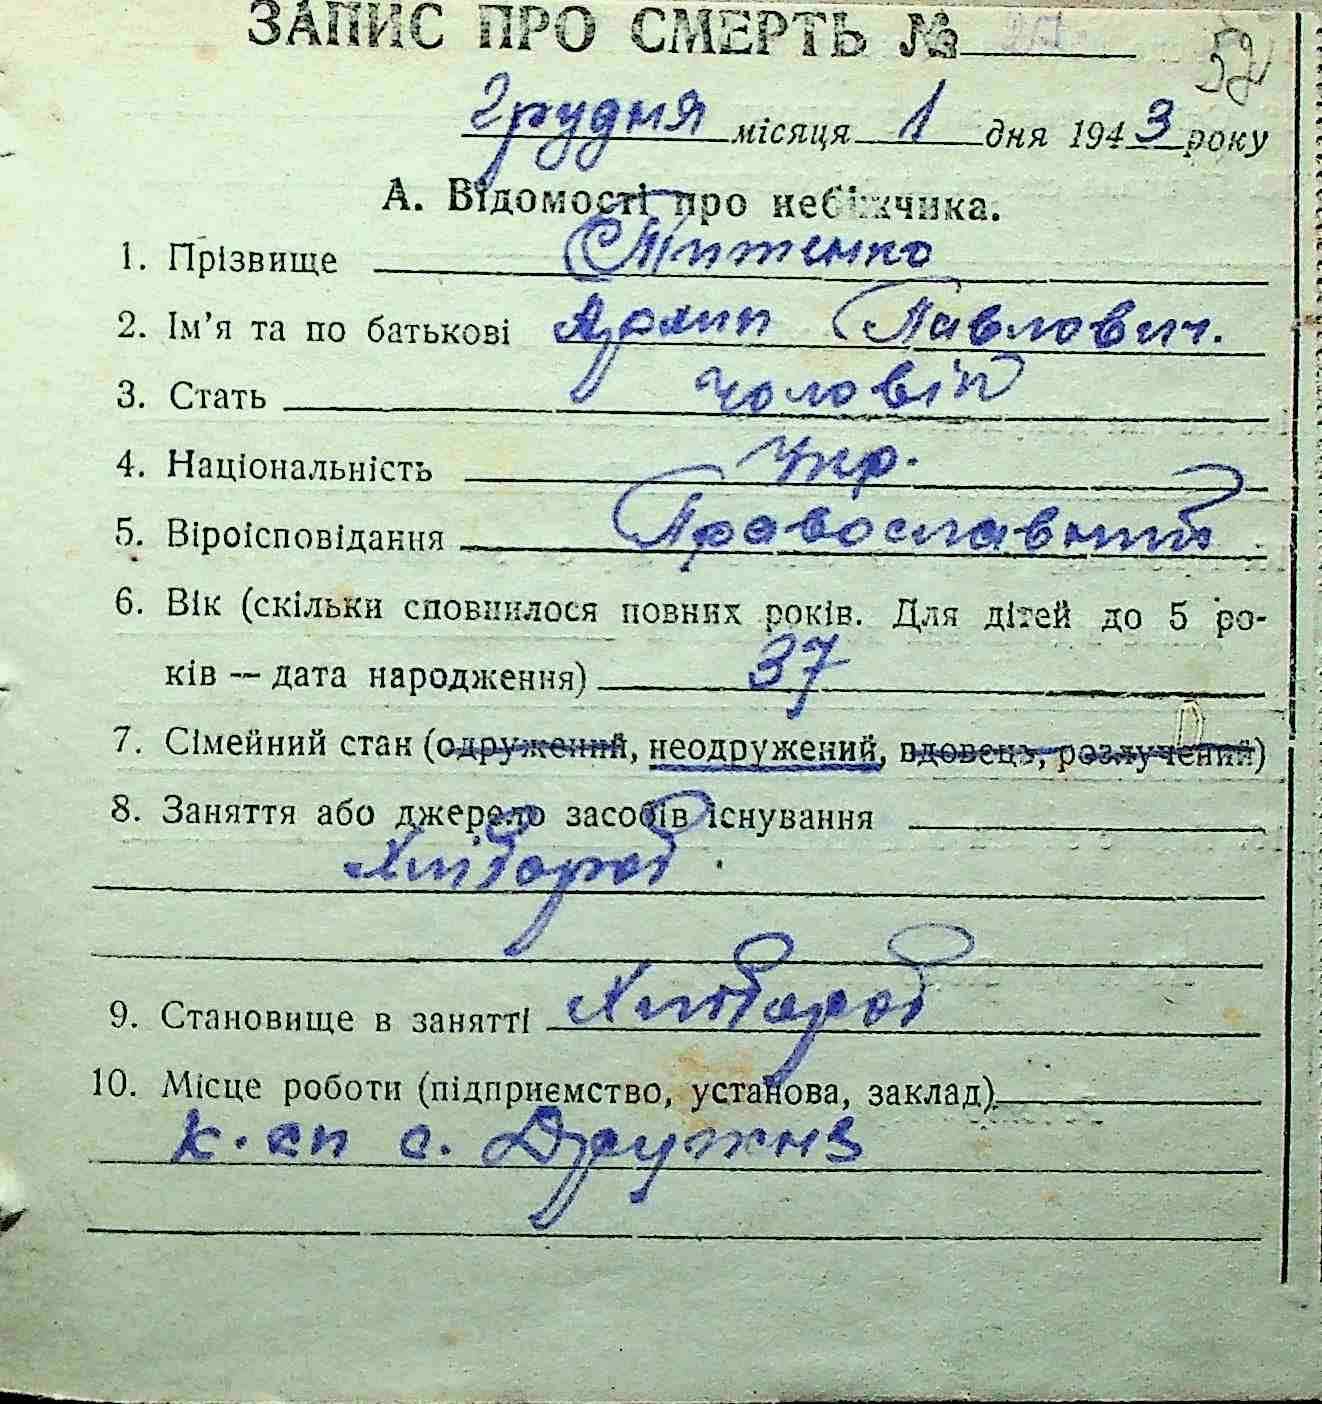 ЗАПИС ПРО СМЕРТЬ №
52
Грудня місяця 1 дня 1943 року
А. Відомості про небіжчика.
1. Прізвище
2. Ім'я та по батькові Павлович.
3. Стать чоловік
4. Національність Укр.
5. Віроісповідання Православний
6. Вік (скільки сповнилося повних років. Для дітей до 5 ро-
ків — дата народження) 37
7. Сімейний стан (одружений, неодружений, вдовець, розлучений)
8. Заняття або джерело засобів існування
Хлібороб.
9. Становище в занятті Хлібороб
10. Місце роботи (підприємство, установа, заклад)
с. Дружня